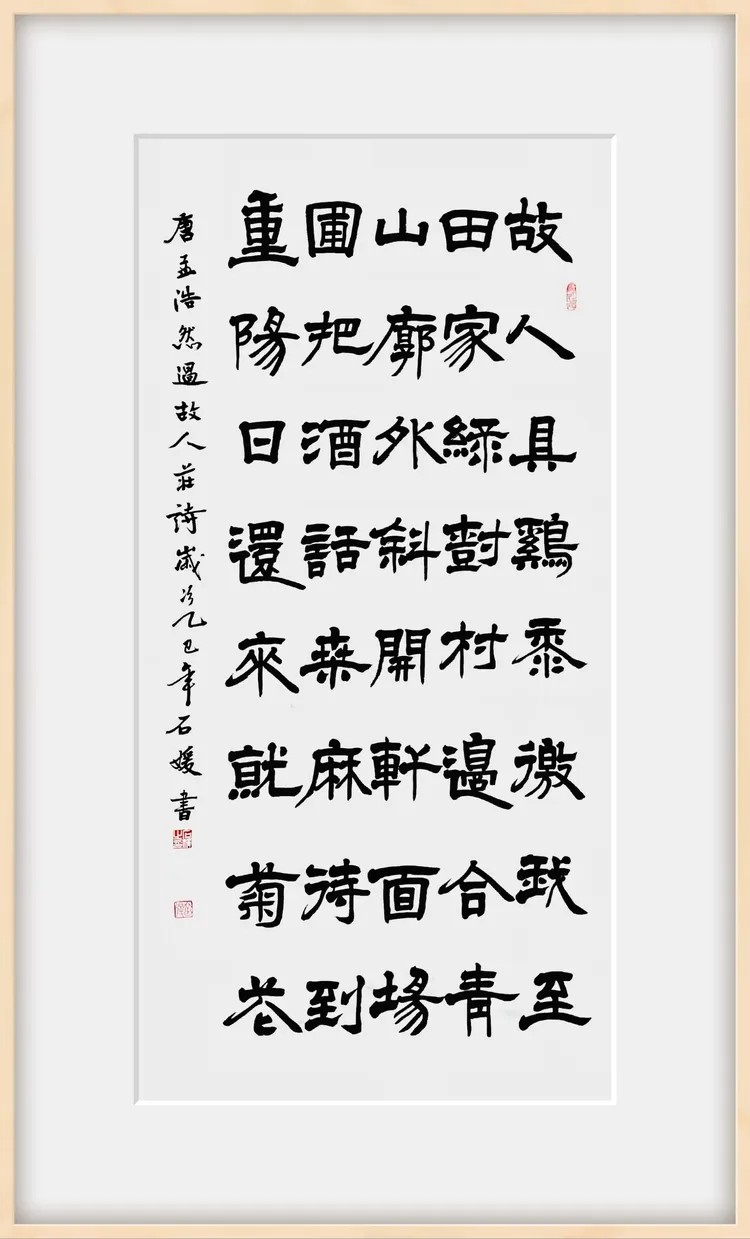 故人具鷄黍徼我至
田家綠樹村邊合青
山廓外斜開軒面場
圃把酒話桑麻待到
重陽日還來就菊花
唐孟浩然過故人莊詩歲次乙巳年石媛書